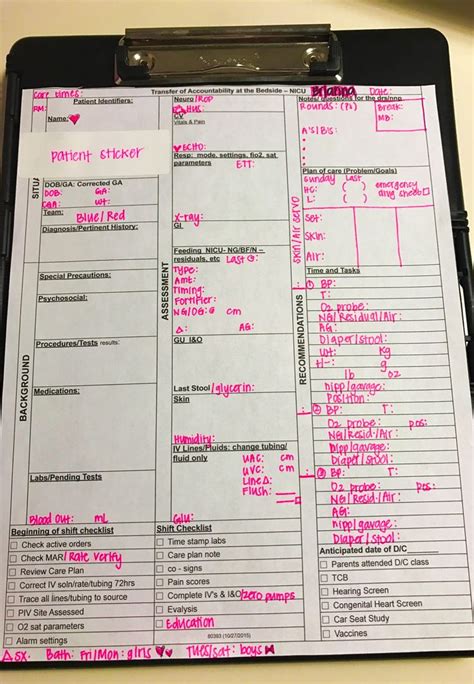 care times:
Transfer of Accountability at the Bedside – NICU
Brianna
Date:
RM:
Patient Identifiers:
Name:
patient sticker
DOB/GA: Corrected GA
DOB: GA:
CGA: WT:
Team: Blue/Red
Diagnosis/Pertinent History:
Special Precautions:
Psychosocial:
Procedures/Tests results:
Medications:
Labs/Pending Tests
Blood Out: mL
SITU
BACKGROUND
Neuro/ROP
HUS:
CV
Vitals & Pain
ECHO:
Resp: mode, settings, fio2, sat
parameters ETT:
X-ray:
GI
Feeding NICU- NG/BF/N –
residuals, etc Last @:
Type:
Amt:
Timing:
Fortifier:
NG/OG: @ cm
Δ: AG:
GU I&O
Last Stool/glycerin:
Skin
Humidity:
IV Lines/Fluids: change tubing/
fluid only UAC: cm
UVC: cm
Line Δ:
Flush
Glu:
ASSESSMENT
Notes/ questions for the drs/nnp
Rounds: (Pt) Break:
MB:
A'S/B'S:
Plan of care (Problem/Goals)
Sunday Last
HC: ( ) emergency
L: ( ) drug sheet
Skin/Air servo
Set:
Skin:
Air:
Time and Tasks
① BP:
T:
O2 probe:
NG/Residual/Air:
AG:
Diaper/stool:
Wt: kg
+/-: g
lb oz
nipp/gavage:
Position:
② BP: T:
O2 probe: pos:
NG/Resid/Air:
nipp/gavage:
Diaper/stool:
③ BP: T:
O2 probe: pos:
NG/Resid/Air:
AG:
nipp/gavage:
Diaper/stool:
RECOMMENDATIONS
Beginning of shift checklist
Check active orders
Check MAR/Rate verify
Review Care Plan
Correct IV soln/rate/tubing 72hrs
Trace all lines/tubing to source
PIV Site Assessed
O2 sat parameters
Alarm settings
Shift Checklist
Time stamp labs
Care plan note
co - signs
Pain scores
Complete IV's & I&O/zero pumps
Evalysis
Education
80393 (10/27/2015)
Anticipated date of D/C
Parents attended D/C class
TCB
Hearing Screen
Congenital Heart Screen
Car Seat Study
Vaccines
Δ SX: Bath: Fri/Mon: girls Tues/Sat: boys